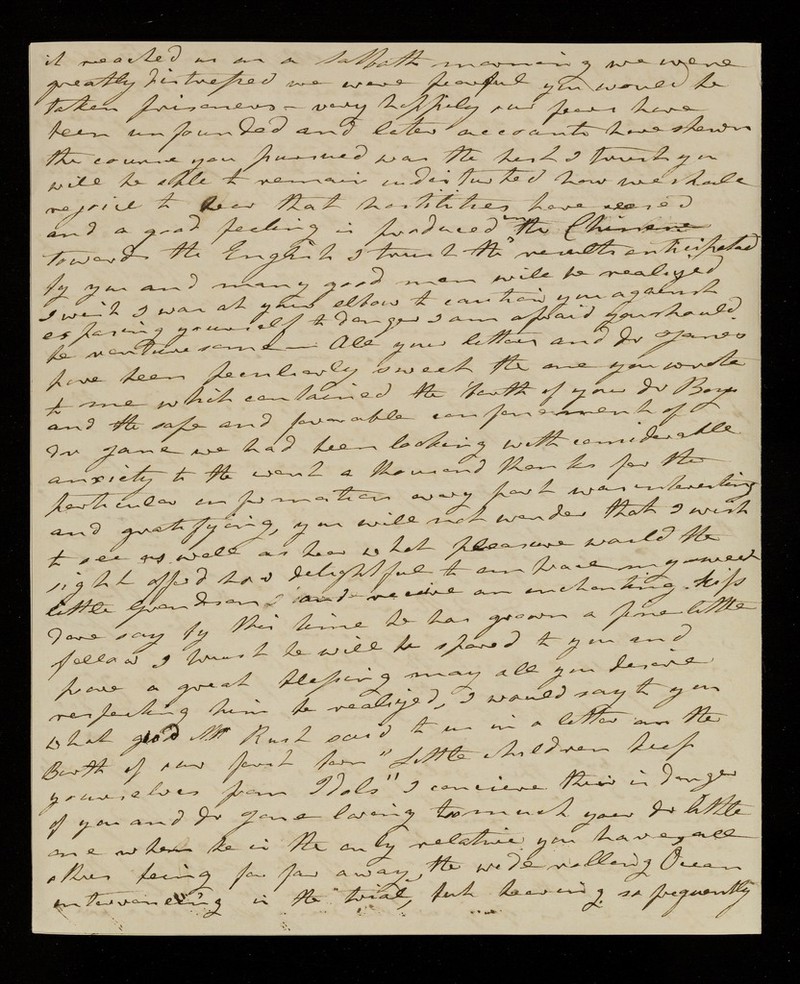 it reached us on a Sabbath morning we were
greatly distressed we were fearful you would be
taken prisoners – very happily our fears have
been unfounded and later accounts have shewn
the course you pursued was the best I trust you
will be able to remain undisturbed how we shall
rejoice to hear that hostilities have ceased
and a good feeling is produced in the Chinese
towards the English I trust the results anticipated
by you and many good men will be realized
I wish I was at your elbow to caution you against
exposing yourself to danger I am afraid you should
be venturesome – All your letters and Dr Janes
have been peculiarly sweet the one you wrote
to me which contained the birth of your Dr Boy
and the safe and favorable confinement of
Dr Jane we had been looking with considerable
anxiety to the event a thousand thanks for the
particular information every part was interesting
and gratifying, you will not wonder that I wish
to see as well as hear what pleasure would the
sight afford how delightful to embrace my sweet
little Grandson and receive an enchanting kiss
I dare say by this time he has grown a fine little
fellow I trust he will be spared to you and
prove a great blessing may all you desire
respecting him be realized, I would say to you
what good Mr Rust said to us in a letter on the
Birth of our first born "Little children keep
yourselves from Idols" I conceive their is danger
of you and Dr Jane loving too much your Dr little
one when he is the only relative you have, all
others being far far away, the wide rolling Ocean
intervening is the trial, but hearing so frequently